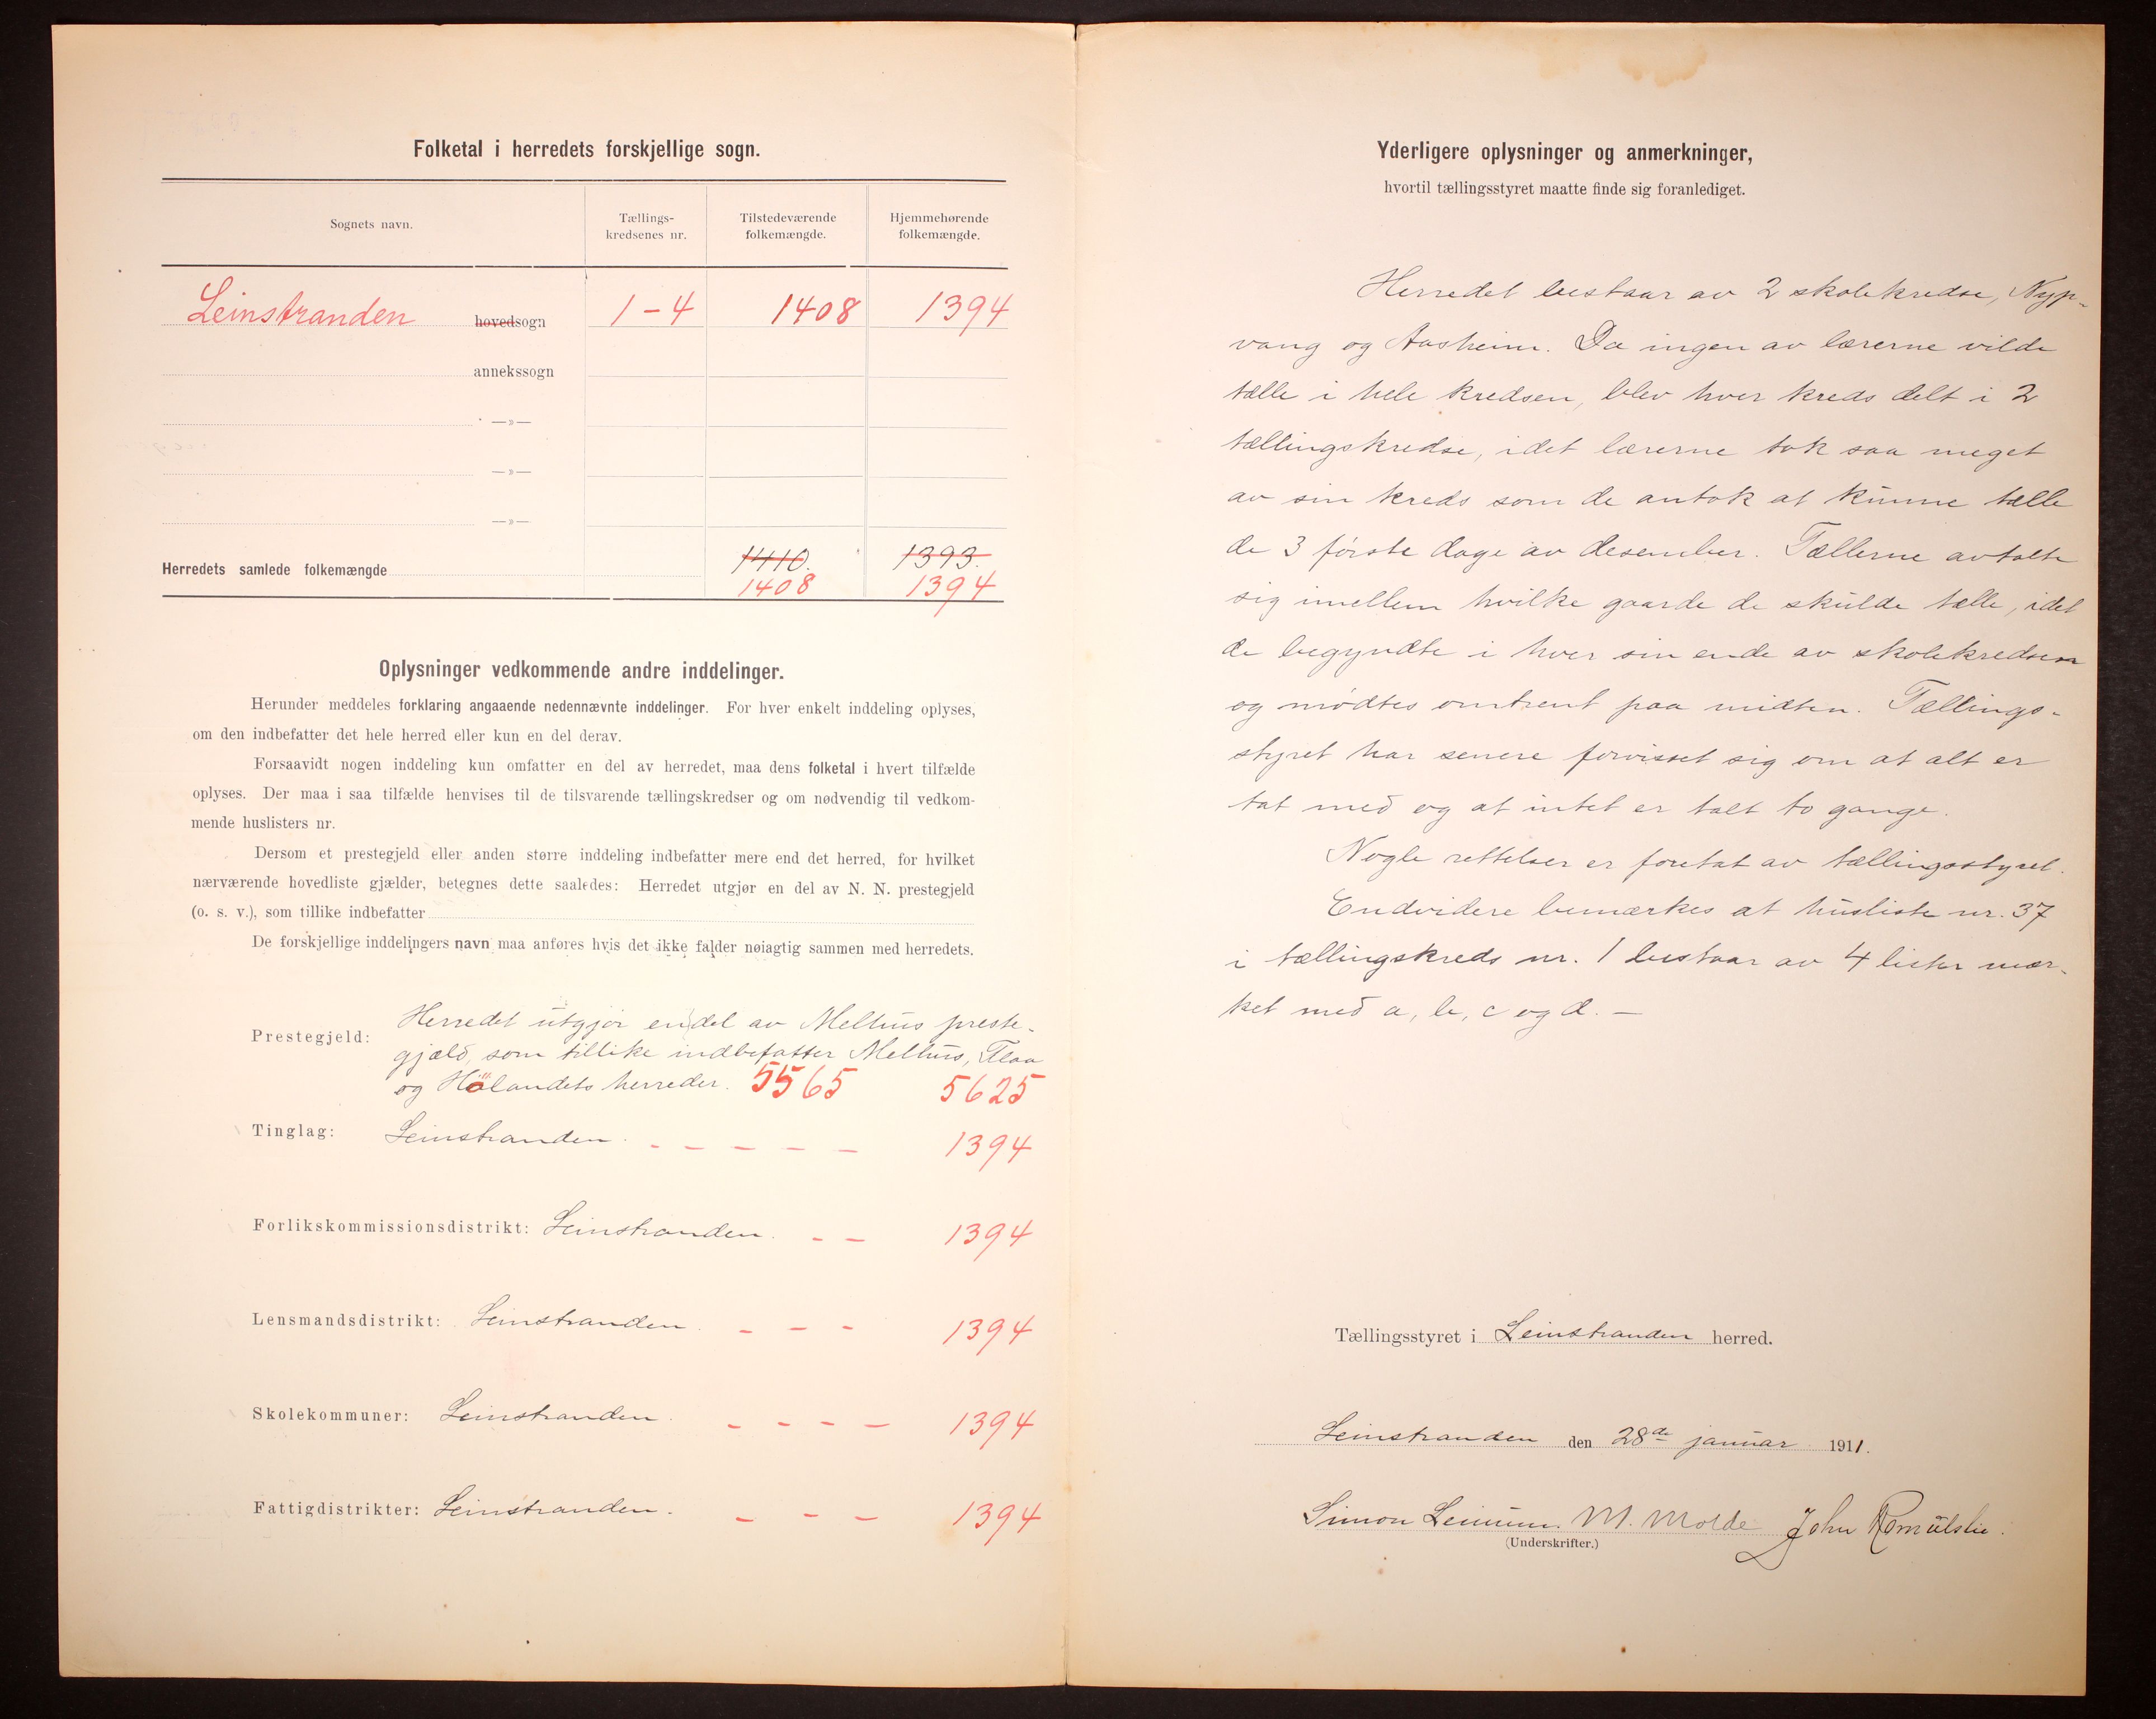 Folketal i herredets forskjellige sogn.
Sognets navn. Tællings-kredsenes nr. Tilstedeværende folkemængde. Hjemmehørende folkemængde.
Leinstranden hovedsogn 1-4 1408 1394
annekssogn
—»—
—»—
—»—
1410. 1393.
Herredets samlede folkemængde
1408 1394
Oplysninger vedkommende andre inddelinger.
Herunder meddeles forklaring angaaende nedennævnte inddelinger. For hver enkelt inddeling oplyses,
om den indbefatter det hele herred eller kun en del derav.
Forsaavidt nogen inddeling kun omfatter en del av herredet, maa dens folketal i hvert tilfælde
oplyses. Der maa i saa tilfælde henvises til de tilsvarende tællingskredser og om nødvendig til vedkom-
mende huslisters nr.
Dersom et prestegjeld eller anden større inddeling indbefatter mere end det herred, for hvilket
nærværende hovedliste gjælder, betegnes dette saaledes: Herredet utgjør en del av N. N. prestegjeld
(o. s. v.), som tillike indbefatter
De forskjellige inddelingers navn maa anføres hvis det ikke falder nøiagtig sammen med herredets.
Prestegjeld: Herredet utgjør en del av Melhus preste-
gjæld, som tillike indbefatter Melhus, Flaa
og Hölandets herreder. 5565 5625
Tinglag: Leinstranden. - - - - - 1394
Forlikskommissionsdistrikt: Leinstranden. - - 1394
Lensmandsdistrikt: Leinstranden. - - - 1394
Skolekommuner: Leinstranden. - - - - 1394
Fattigdistrikter: Leinstranden. - - - 1394
Yderligere oplysninger og anmerkninger,
hvortil tællingsstyret maatte finde sig foranlediget.
Herredet bestaar av 2 skolekredse, Nyp-
vang og Aasheim. Da ingen av lærerne vilde
tælle i hele kredsen, blev hver kreds delt i 2
tællingskredse, idet lærerne tok saa meget
av sin kreds som de antok at kunne tælle
de 3 første dage av desember. Tællerne avtalte
sig imellem hvilke gaarde de skulde tælle, idet
de begyndte i hver sin ende av skolekredsen
og mødtes omtrent paa midten. Tællings-
styret har senere forvisset sig om at alt er
tat med og at intet er talt to gange.
Nogle rettelser er foretat av tællingsstyret.
Endvidere bemærkes at husliste nr. 37
i tællingskreds nr. 1 bestaar av 4 lister mær-
ket med a, b, c og d. —
Tællingsstyret i Leinstranden herred.
Leinstranden den 28de januar 1911.
Simon Leinum. M. Molde John Romulslie.
(Underskrifter.)